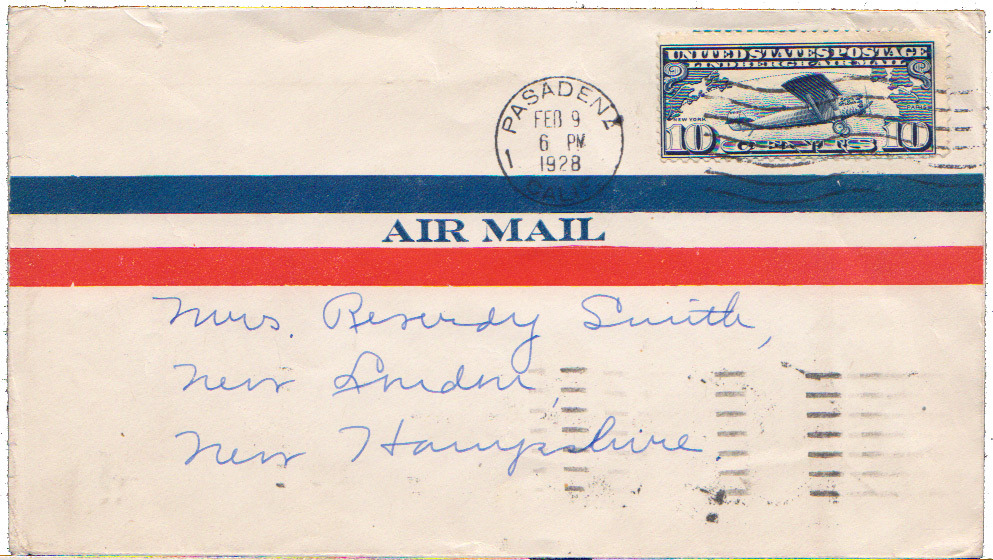 UNITED STATES POSTAGE
LINDBERGH AIR MAIL
NEW YORK
PARIS
10 CENTS 10
PASADENA
FEB 9
6 PM
1928
1
CALIF
AIR MAIL
Mrs. Reverdy Smith,
New London,
New Hampshire.